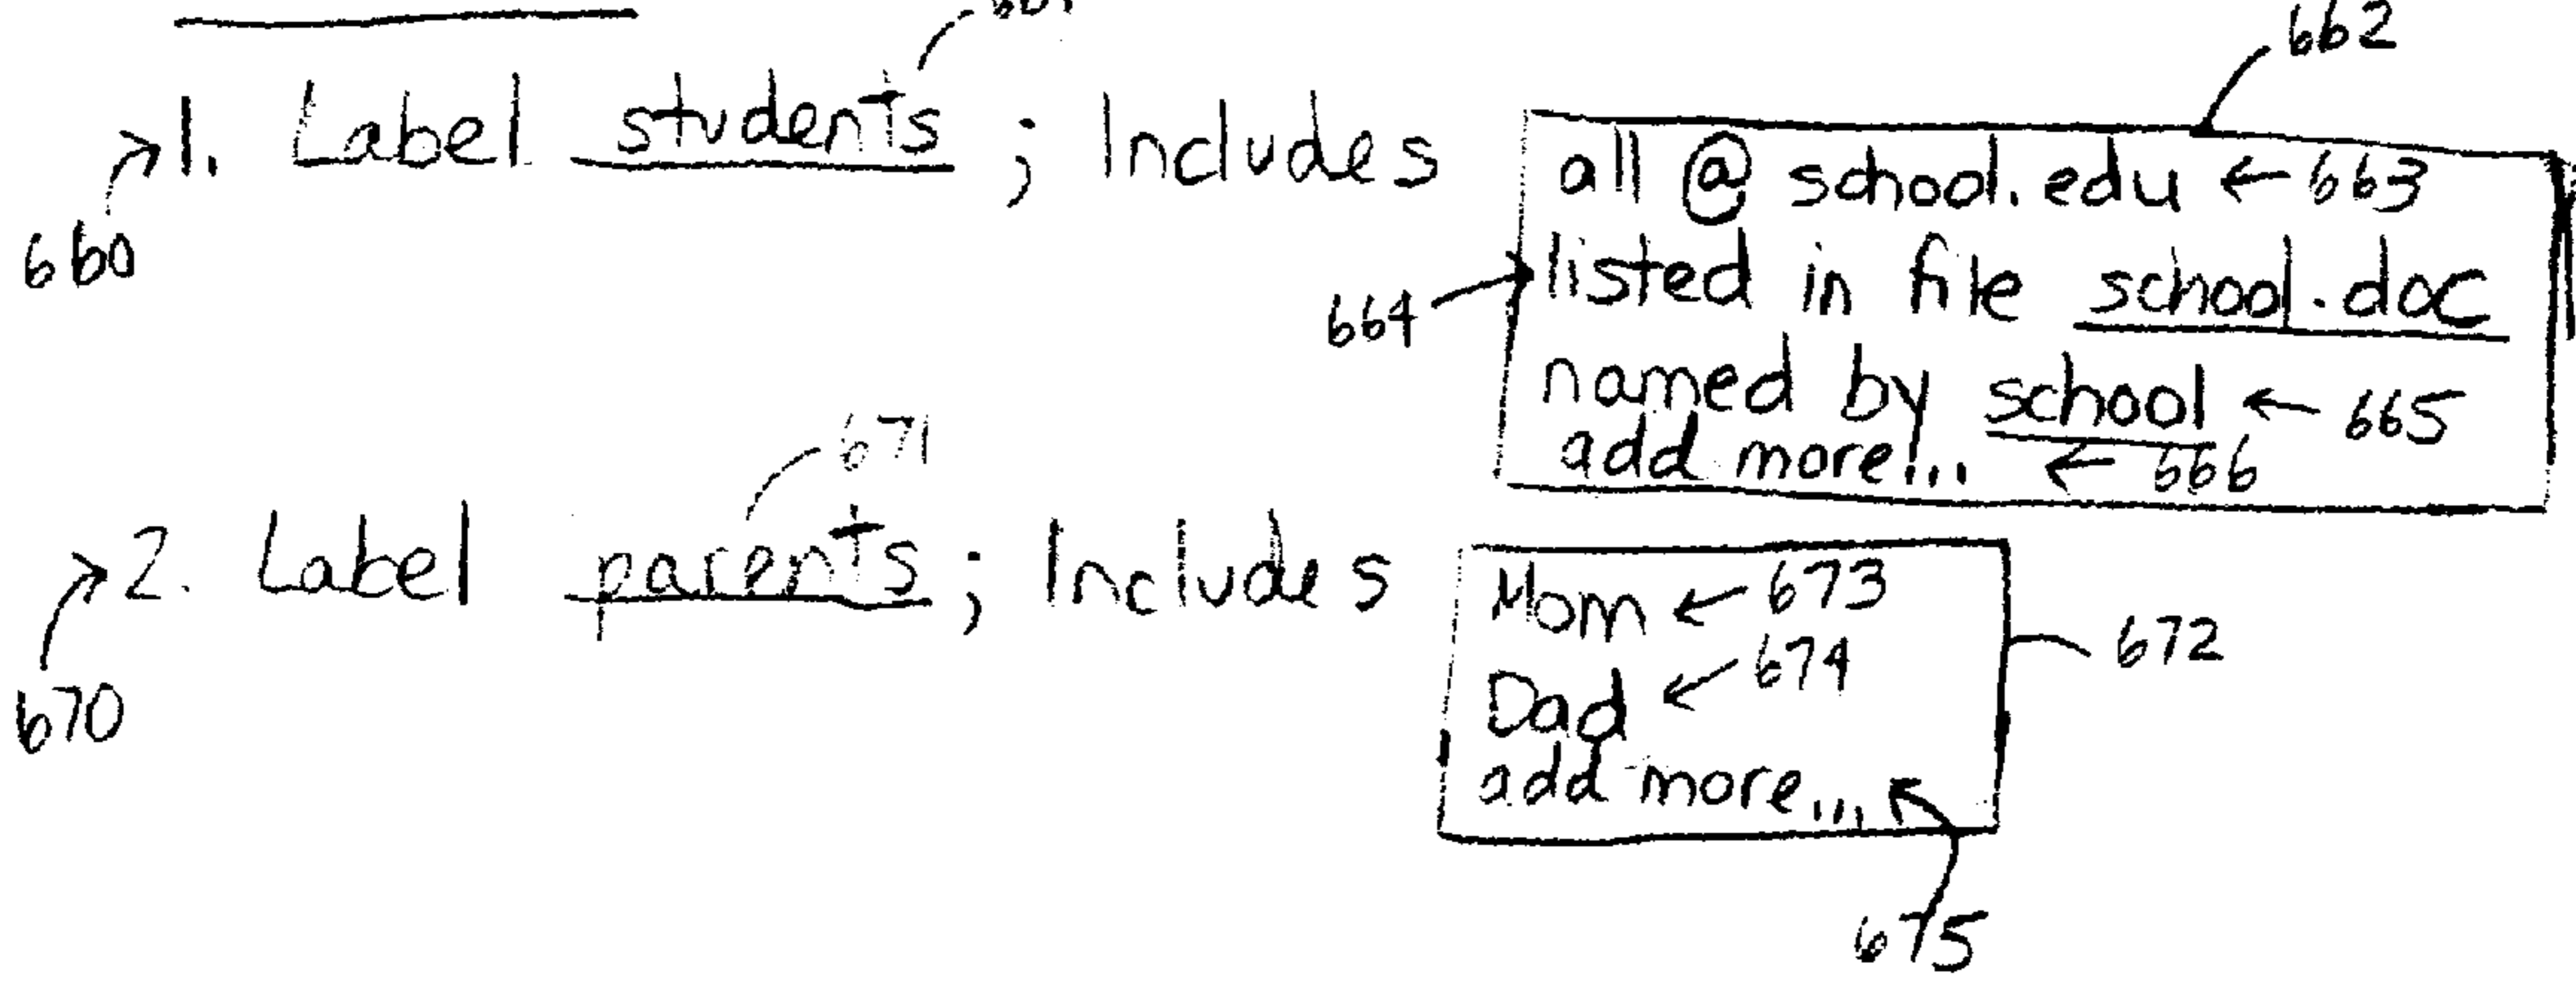 662
1. Label students ; Includes
660
all @ school.edu ← 663
664
listed in file school.doc
named by school ← 665
add more... ← 666
671
2. Label parents ; Includes
670
Mom ← 673
Dad ← 674
672
add more...
675